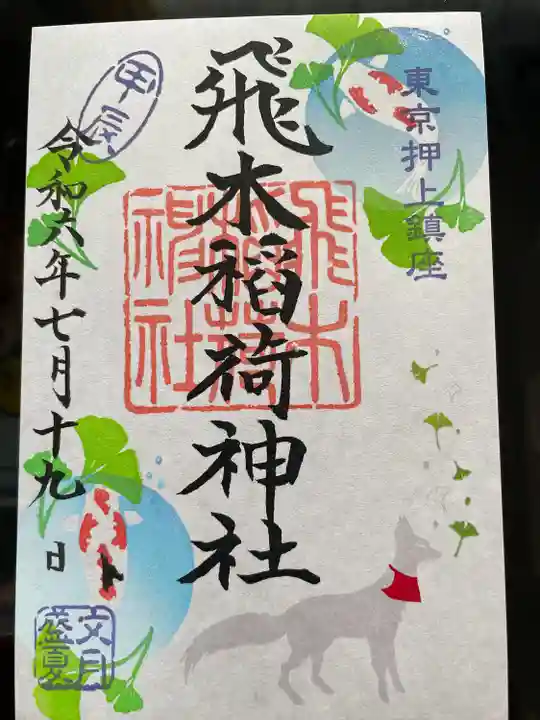 東京押上鎮座
飛木稲荷神社
飛木
稲荷
神社
甲辰
令和六年七月十九日
文月
盛夏